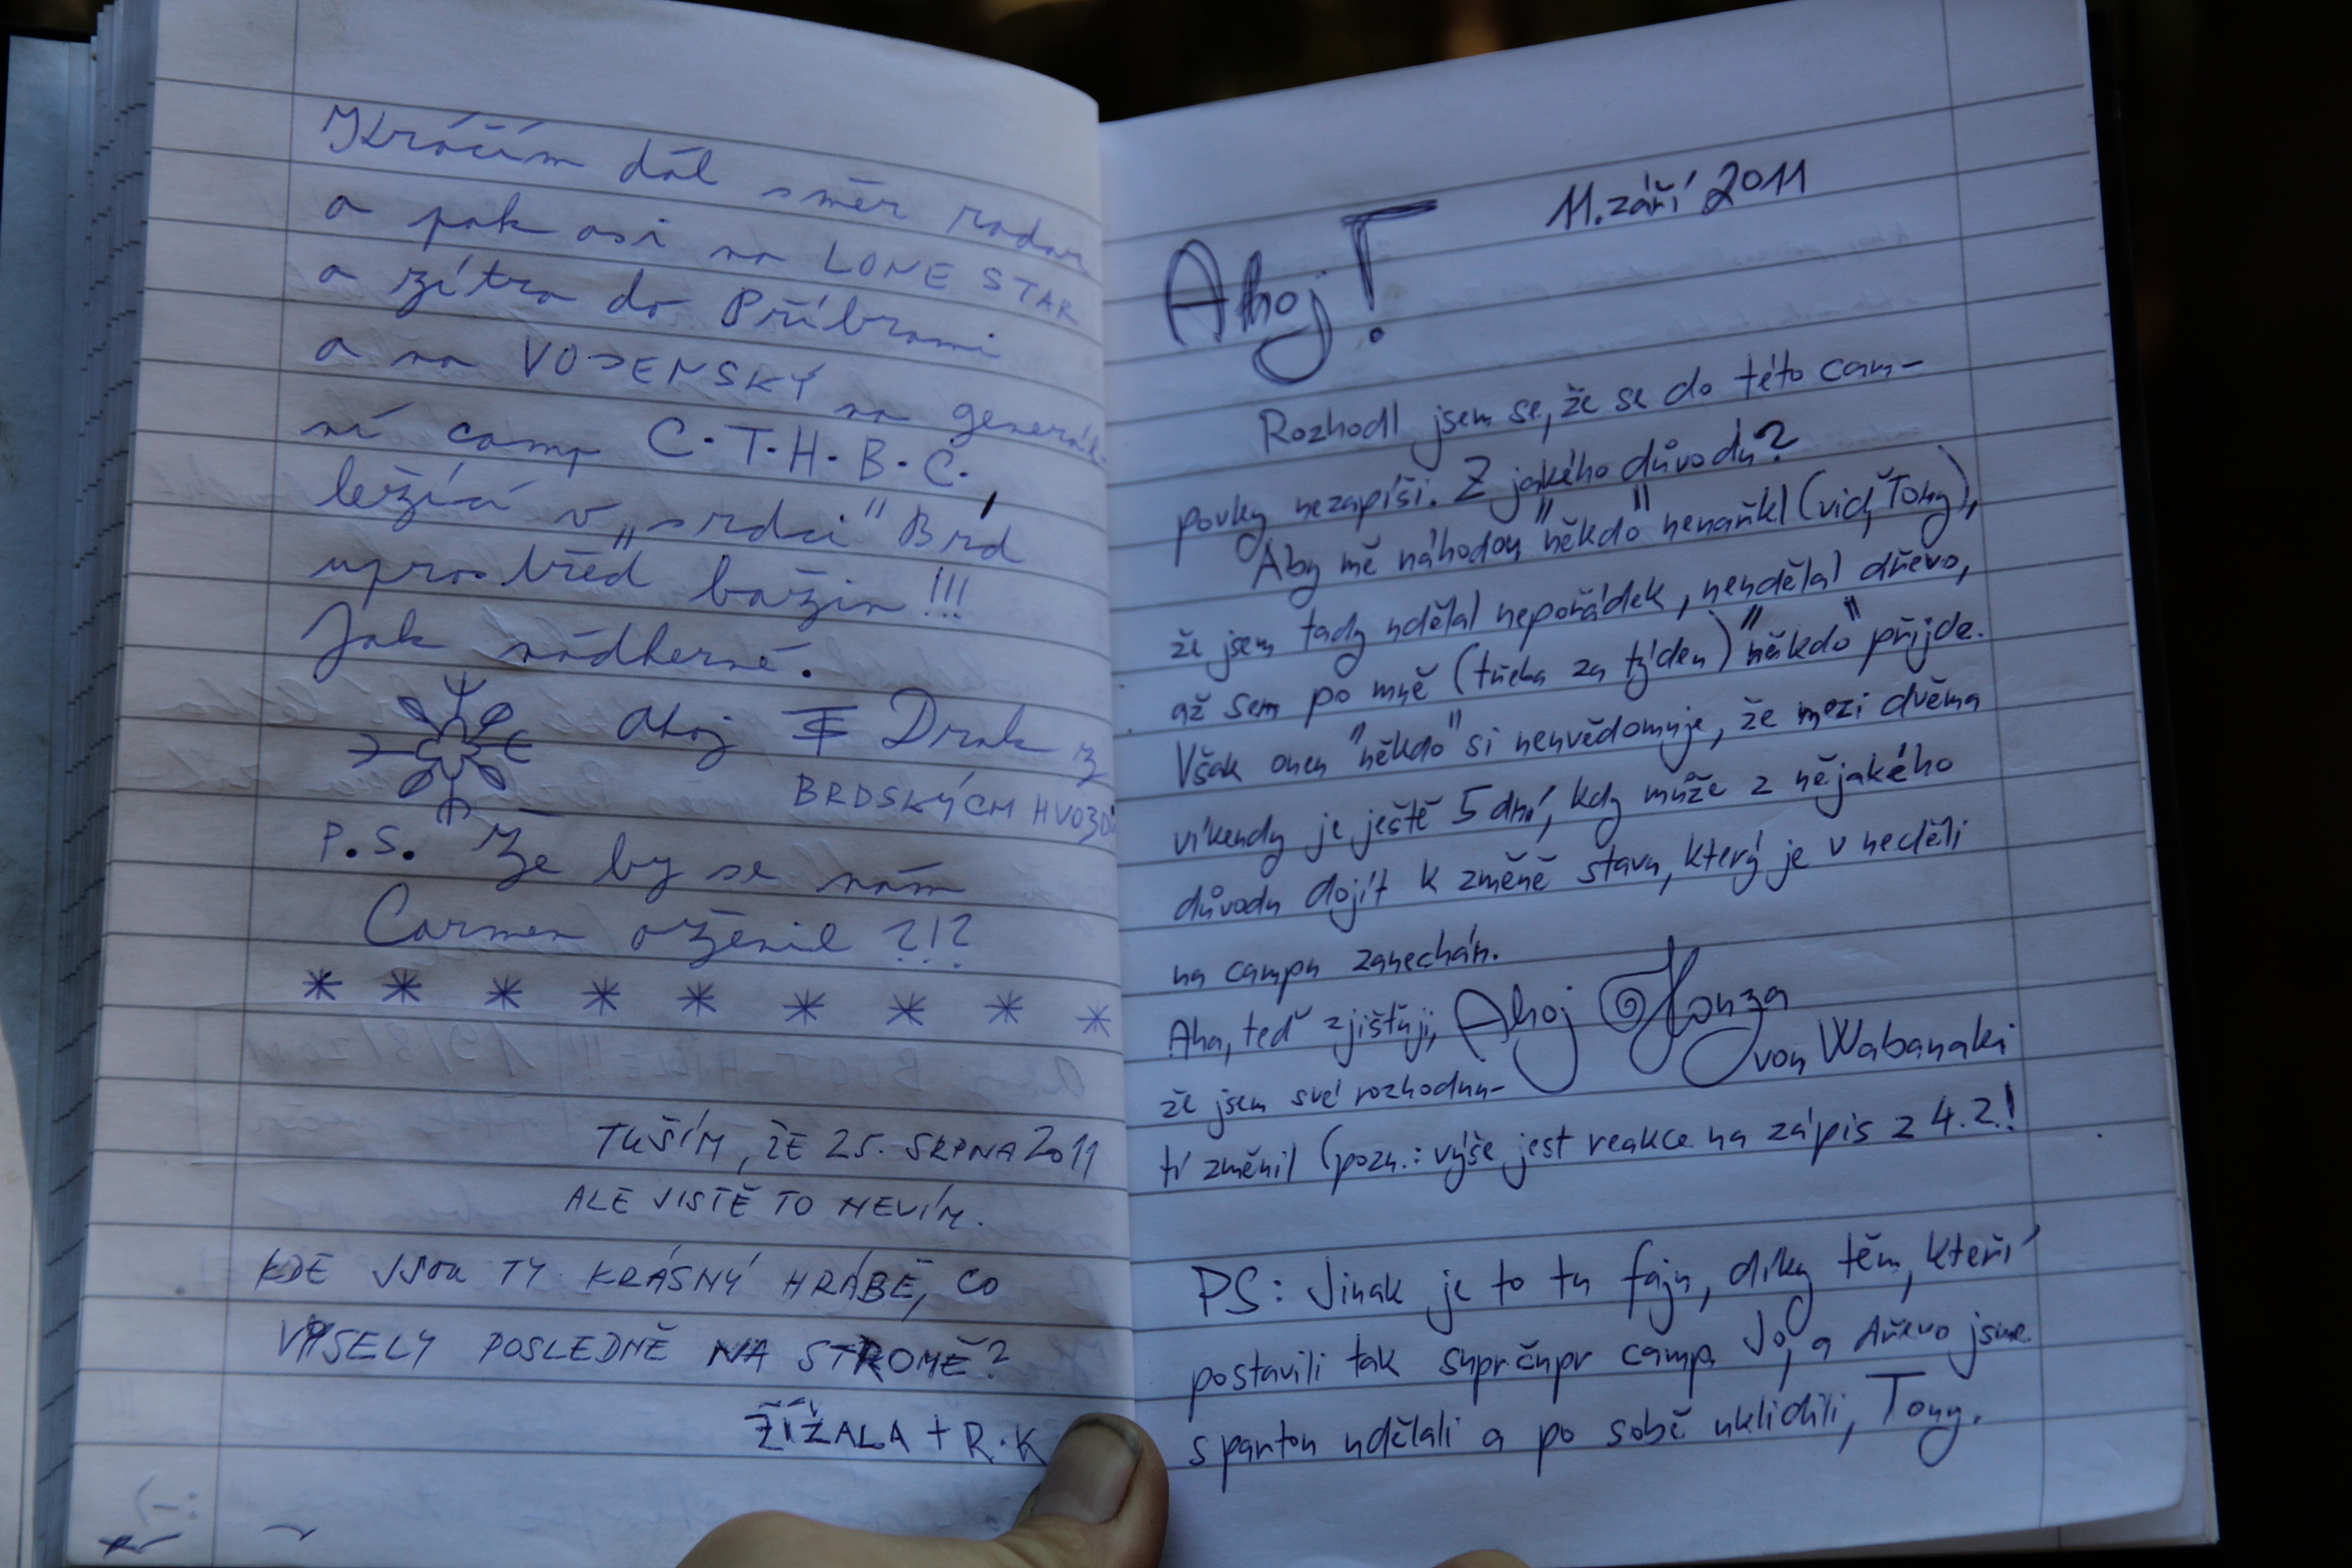 Kráčím dál směr radar
a pak asi na LONE STAR
a zítra do Příbrami
a na VOJENSKÝ na generál-
ní camp C.T.H.B.C.,
ležící v „srdci" Brd
uprostřed bažin!!!
Jak nádherné.
Ahoj Drak z
BRDSKÝCH HVOZDŮ
P.S. Že by se nám
Carmen oženil ?!?
* * * * * * * * *
TUŠÍM, ŽE 25. SRPNA 2011
ALE JISTĚ TO NEVÍM.
KDE JSOU TY KRÁSNÝ HRÁBĚ, CO
VYSELY POSLEDNĚ NA STROMĚ?
ŽÍŽALA + R.K
11. září 2011
Ahoj!
Rozhodl jsem se, že se do této cam-
povky nezapíši. Z jakého důvodu?
Aby mě náhodou "někdo" nenařkl (viď, Tony),
že jsem tady udělal nepořádek, neudělal dřevo,
až sem po mně (třeba za týden) "někdo" přijde.
Však onen "někdo" si neuvědomuje, že mezi dvěma
víkendy je ještě 5 dní, kdy může z nějakého
důvodu dojít k změně stavu, který je v neděli
na campu zanechán.
Aha, teď zjišťuji, Ahoj Honza
von Wabanaki
že jsem své rozhodnu-
tí změnil (pozn.: výše jest reakce na zápis z 4.2.!
PS: Jinak je to tu fajn, díky těm, kteří
postavili tak suprčupr camp. Jo, a dřevo jsme
s partou udělali a po sobě uklidili, Tony.